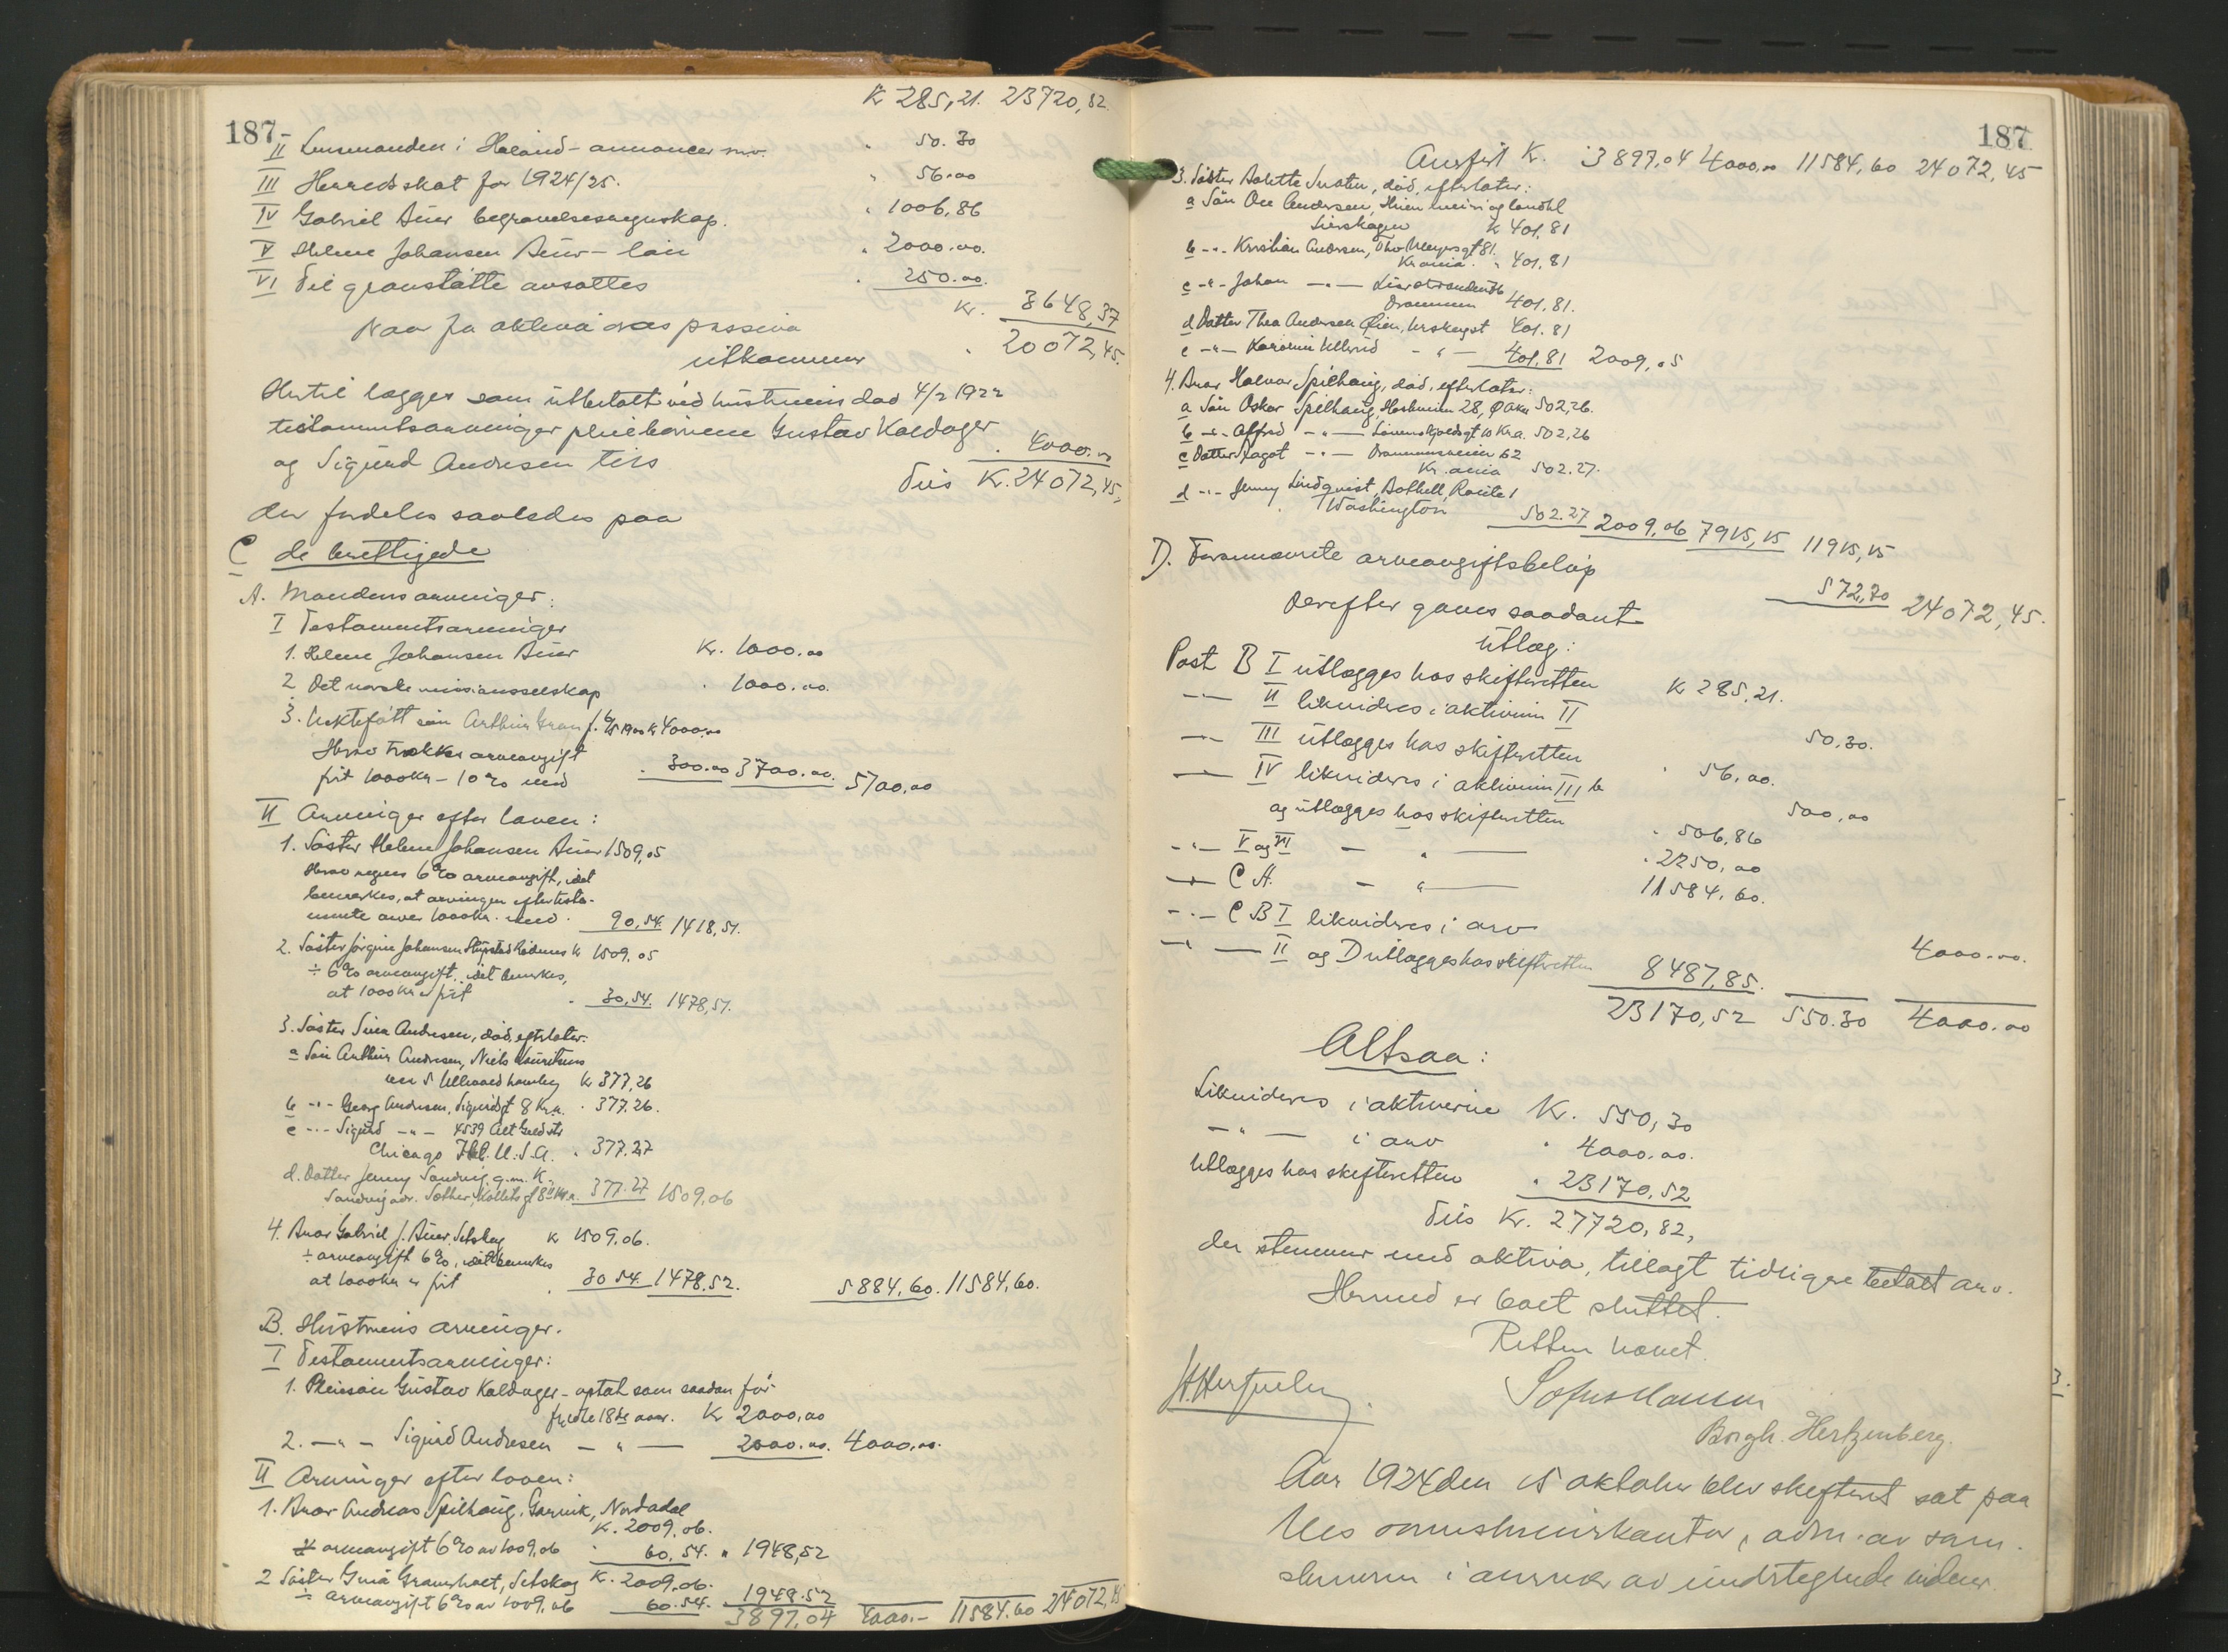 K 285,21. 23720,82.
187
II Lensmanden i Høland - annoncer mv. " 50.30
III Herredskat for 1924/25. " 56.00
IV Gabriel Aur begravelsesregnskap. " 1006,86
V Helene Johansen Aur - laan " 2000.00.
VI Til gravstøtte avsættes " 250.00.
Kr. 3648,37
Naar fra aktiva drages passiva
utkommer " 20072,45.
Hertil lægges som utbetalt ved hustruens død 4/2 1922
testamentsarvinger pleiebørnene Gustav Kaldager
og Sigurd Andresen tils " 4000.00
Tils K. 24072,45,
der fordeles saaledes paa
C de berettigede
A. Mandens arvinger:
I Testamentsarvinger
1. Helene Johansen Aur Kr. 1000.00
2 Det norske missionsselskap " 1000.00.
3. Uektefødt søn Arthur Gran f. 1900 K 4000.00
Herav trækkes arveavgift
frit 1000 Kr - 10% med " 300.00 3700.00. 5700,00
II Arvinger efter loven:
1. Søster Helene Johansen Aur 1509,05
Herav regnes 6% arveavgift, idet
bemerkes, at arvingen efter testa-
mente arver 1000 Kr. med " 90,54. 1418,51.
2. Søster Jørgine Johansen Kr 1509.05
÷ 6% arveavgift. idet bemerkes,
at 1000 Kr er frit " 30,54. 1478,51.
3. Søster Sina Andresen, død, efterlater:
a Søn Arthur Andresen, Niels Lauritsens
vei 5 Ullevaal haveby Kr 377,26
b -"- Georg Andresen, Sigurdsgt 8 Kr.a. " 377.26.
c -"- Sigurd -"- 4539
Chicago Ill. U.S.A. " 377.27
d. Datter Jenny Sandvig g.m. K.
Sandvig adr. Kollets gt 8 Kr.a. 377.27 1509,06
4. Bror Gabriel J. Aur, Setskog K 1509.06.
÷ arveavgift 6%, idet bemerkes
at 1000 Kr er frit " 30 54. 1478.52. 5884,60. 11584,60.
B. Hustruens arvinger.
I Testamentsarvinger:
1. Pleiesøn Gustav Kaldager - optat som saadan før
fyldte 18 de aar. Kr 2000,00
2. -"- Sigurd Andresen -"- 2000.00. 4000,00.
II Arvinger efter loven:
1. Bror Andreas Spilhaug, Nordadal
K. 2009.06.
÷ arveavgift 6% av 1009,06 " 60.54. " 1948,52
2 Søster Setskog K. 2009,06.
÷ arveavgift 6% av 1009,06 60.54. 1948.52
3897,04 4000.- 11584.60 24072,45
187
Anført K. 3897,04 4000,00 11584,60 24072,45
3. Søster død, efterlater:
a Søn Ole Andersen,
Lierskogen K 401,81
b -"- Kristian Andersen, Thv Meyersgt 81.
Kr.ania. " 401,81
c -"- Johan -"- Lierstranden
Drammen 401,81.
d Datter Thea Andersen Øien, 401.81
e -"- -"- 401,81 2009,05
4. Bror Halvor Spilhaug, død, efterlater:
a Søn Oskar Spilhaug, 28, Ø Aker 502,26.
b -"- Alfred -"- 10 Kr.a. 502,26
c Datter Dagot -"- Drammensveien 62
Kr.ania 502.27.
d -"- Jenny Lindqvist, Bothell, Route 1
Washington 502.27 2009,06 7915,15 11915,15
D. Forannævnte arveavgiftsbeløp 572,70 24072,45.
Derefter gaves saadant
utlæg:
Post B I utlægges hos skifteretten K 285,21.
-"- II likvideres i aktivum II 50,30.
-"- III utlægges hos skifteretten " 56,00.
-"- IV likvideres i aktivum III b 500,00
og utlægges hos skifteretten " 506,86
-"- V og VI - " - " 2250,00
-"- C A. - " - 11584,60.
-"- C B I likvideres i arv 4000.00.
-"- II og D utlægges hos skifteretten 8487,85.
23170,52 550.30 4000.00
Altsaa:
Likvideres i aktiverne Kr. 550,30
-"- i arv " 4000.00.
Utlægges hos skifteretten " 23170,52
Tils Kr. 27720,82,
der stemmer med aktiva, tillagt tidligere betalt arv.
Hermed er boet sluttet.
Retten hævet.
H. Hertzberg.
Sofus Hansen
Borgh. Hertzenberg.
Aar 1924 den 15 oktober blev skifteret sat paa
Nes sorenskriverkontor, adm. av soren-
skriveren i nærvær av undertegnede vidner.